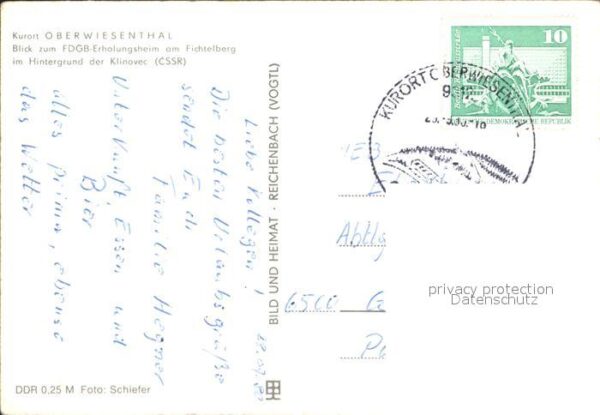 Kurort OBERWIESENTHAL
Blick zum FDGB-Erholungsheim am Fichtelberg
im Hintergrund der Klinovec (CSSR)
10
DEMOKRATISCHE REPUBLIK
KURORT OBERWIESENTHAL
Liebe Kollegen!
Die besten Urlaubsgrüße
sendet Euch
Familie Heymer
Unterkunft, Essen und
Bier
alles prima, ebenso
das Wetter
BILD UND HEIMAT · REICHENBACH (VOGTL)
VEB
Abtlg
6500 G
privacy protection
Datenschutz
DDR 0,25 M Foto: Schiefer